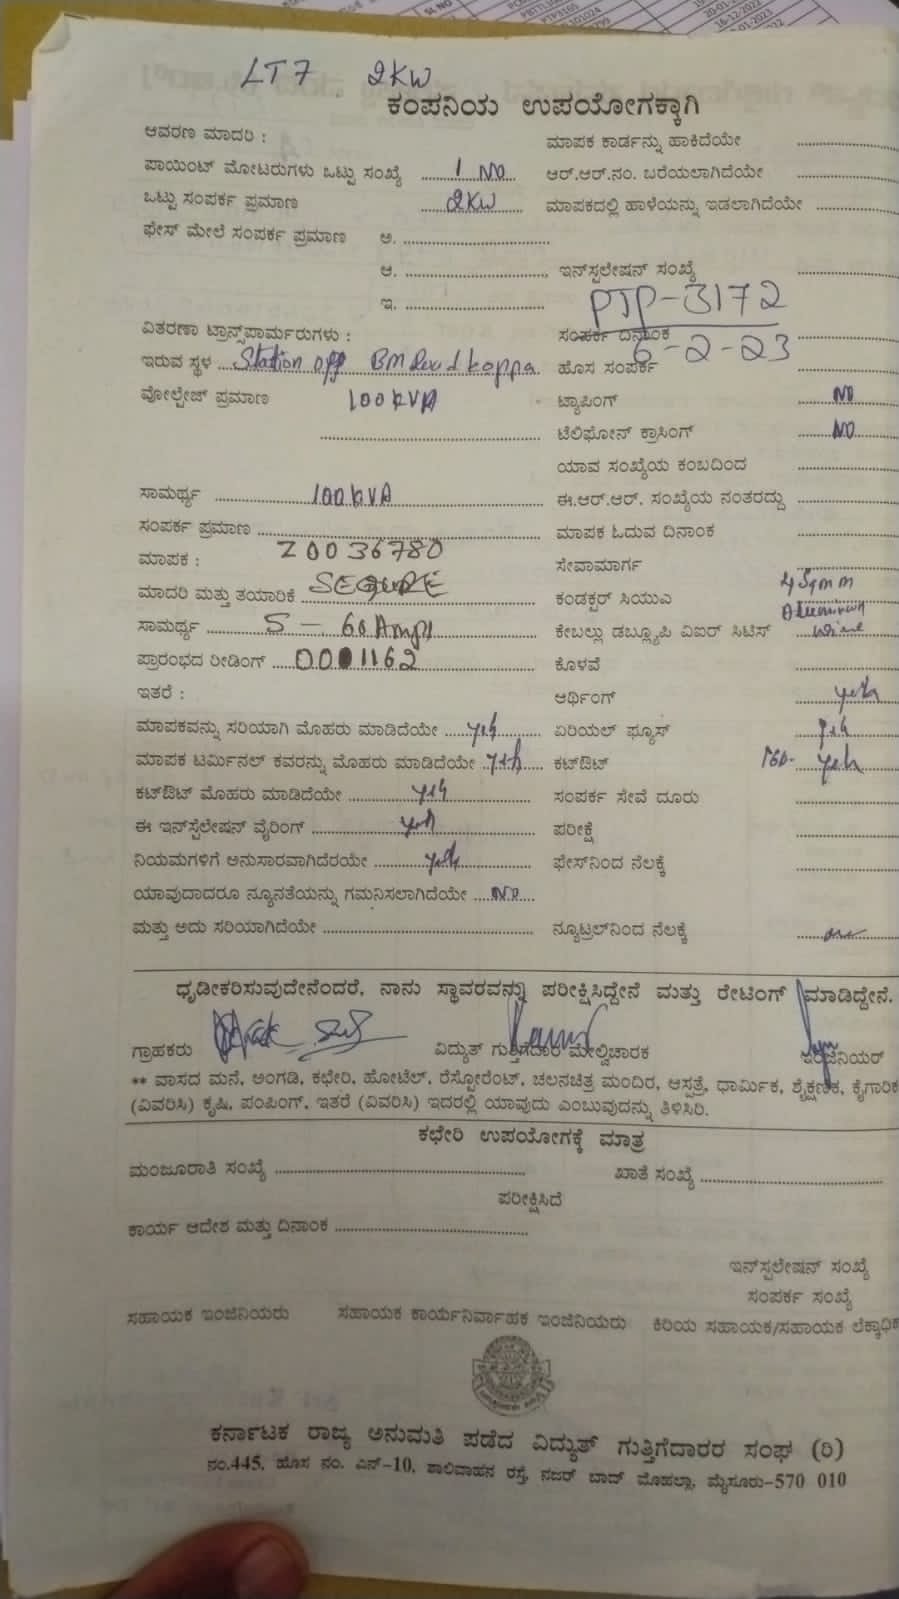 LT7 2KW
ಕಂಪನಿಯ ಉಪಯೋಗಕ್ಕಾಗಿ
ಆವರಣ ಮಾದರಿ :
ಮಾಪಕ ಕಾರ್ಡನ್ನು ಹಾಕಿದೆಯೇ
ಪಾಯಿಂಟ್ ಮೋಟರುಗಳು ಒಟ್ಟು ಸಂಖ್ಯೆ 1 NO
ಆರ್.ಆರ್.ನಂ. ಬರೆಯಲಾಗಿದೆಯೇ
ಒಟ್ಟು ಸಂಪರ್ಕ ಪ್ರಮಾಣ 2KW
ಮಾಪಕದಲ್ಲಿ ಹಾಳೆಯನ್ನು ಇಡಲಾಗಿದೆಯೇ
ಫೇಸ್ ಮೇಲೆ ಸಂಪರ್ಕ ಪ್ರಮಾಣ ಅ.
ಆ.
ಇನ್‌ಸ್ಟಲೇಷನ್ ಸಂಖ್ಯೆ
ಇ.
PJP-3172
ವಿತರಣಾ ಟ್ರಾನ್ಸ್‌ಪಾರ್ಮರುಗಳು :
ಸಂಪರ್ಕ ದಿನಾಂಕ 6-2-23
ಇರುವ ಸ್ಥಳ Station opp BM Road koppa
ಹೊಸ ಸಂಪರ್ಕ
ವೋಲ್ಟೇಜ್ ಪ್ರಮಾಣ 100kVA
ಟ್ಯಾಪಿಂಗ್ NO
ಟೆಲಿಫೋನ್ ಕ್ರಾಸಿಂಗ್ NO
ಯಾವ ಸಂಖ್ಯೆಯ ಕಂಬದಿಂದ
ಸಾಮರ್ಥ್ಯ 100kVA
ಈ.ಆರ್.ಆರ್. ಸಂಖ್ಯೆಯ ನಂತರದ್ದು
ಸಂಪರ್ಕ ಪ್ರಮಾಣ
ಮಾಪಕ ಓದುವ ದಿನಾಂಕ
ಮಾಪಕ : 20036780
ಸೇವಾಮಾರ್ಗ
ಮಾದರಿ ಮತ್ತು ತಯಾರಿಕೆ SECURE
ಕಂಡಕ್ಟರ್ ಸಿಯುಎ 4 Sqmm
ಸಾಮರ್ಥ್ಯ 5 - 60 Amps
ಕೇಬಲ್ಲು ಡಬ್ಲ್ಯೂಪಿ ವಿಐರ್ ಸಿಟಿಸ್ Aluminium wire
ಪ್ರಾರಂಭದ ರೀಡಿಂಗ್ 0001162
ಕೊಳವೆ
ಇತರೆ :
ಆರ್ಥಿಂಗ್ yeh
ಮಾಪಕವನ್ನು ಸರಿಯಾಗಿ ಮೊಹರು ಮಾಡಿದೆಯೇ yeh
ಏರಿಯಲ್ ಫ್ಯೂಸ್ yeh
ಮಾಪಕ ಟರ್ಮಿನಲ್ ಕವರನ್ನು ಮೊಹರು ಮಾಡಿದೆಯೇ yeh
ಕಟ್‌ಔಟ್ yeh
ಕಟ್‌ಔಟ್ ಮೊಹರು ಮಾಡಿದೆಯೇ yeh
ಸಂಪರ್ಕ ಸೇವೆ ದೂರು
ಈ ಇನ್‌ಸ್ಟೆಲೇಷನ್ ವೈರಿಂಗ್ yeh
ಪರೀಕ್ಷೆ
ನಿಯಮಗಳಿಗೆ ಅನುಸಾರವಾಗಿದೆರಯೇ yeh
ಫೇಸ್‌ನಿಂದ ನೆಲಕ್ಕೆ
ಯಾವುದಾದರೂ ನ್ಯೂನತೆಯನ್ನು ಗಮನಿಸಲಾಗಿದೆಯೇ NO
ಮತ್ತು ಅದು ಸರಿಯಾಗಿದೆಯೇ
ನ್ಯೂಟ್ರಲ್‌ನಿಂದ ನೆಲಕ್ಕೆ
ಧೃಡೀಕರಿಸುವುದೇನೆಂದರೆ, ನಾನು ಸ್ಥಾವರವನ್ನು ಪರೀಕ್ಷಿಸಿದ್ದೇನೆ ಮತ್ತು ರೇಟಿಂಗ್ ಮಾಡಿದ್ದೇನೆ.
ಗ್ರಾಹಕರು ವಿದ್ಯುತ್ ಗುತ್ತಿಗೆದಾರ ಮೇಲ್ವಿಚಾರಕ ಇಂಜಿನಿಯರ್
** ವಾಸದ ಮನೆ, ಅಂಗಡಿ, ಕಛೇರಿ, ಹೋಟೆಲ್, ರೆಸ್ಟೋರೆಂಟ್, ಚಲನಚಿತ್ರ ಮಂದಿರ, ಆಸ್ಪತ್ರೆ, ಧಾರ್ಮಿಕ, ಶೈಕ್ಷಣಿಕ, ಕೈಗಾರಿಕ
(ವಿವರಿಸಿ) ಕೃಷಿ, ಪಂಪಿಂಗ್, ಇತರೆ (ವಿವರಿಸಿ) ಇದರಲ್ಲಿ ಯಾವುದು ಎಂಬುವುದನ್ನು ತಿಳಿಸಿರಿ.
ಕಛೇರಿ ಉಪಯೋಗಕ್ಕೆ ಮಾತ್ರ
ಮಂಜೂರಾತಿ ಸಂಖ್ಯೆ ಖಾತೆ ಸಂಖ್ಯೆ
ಪರೀಕ್ಷಿಸಿದೆ
ಕಾರ್ಯ ಆದೇಶ ಮತ್ತು ದಿನಾಂಕ
ಇನ್‌ಸ್ಟಲೇಷನ್ ಸಂಖ್ಯೆ
ಸಂಪರ್ಕ ಸಂಖ್ಯೆ
ಸಹಾಯಕ ಇಂಜಿನಿಯರು ಸಹಾಯಕ ಕಾರ್ಯನಿರ್ವಾಹಕ ಇಂಜಿನಿಯರು ಕಿರಿಯ ಸಹಾಯಕ/ಸಹಾಯಕ ಲೆಕ್ಕಾಧಿಕ
ಕರ್ನಾಟಕ ರಾಜ್ಯ ಅನುಮತಿ ಪಡೆದ ವಿದ್ಯುತ್ ಗುತ್ತಿಗೆದಾರರ ಸಂಘ (ರಿ)
ನಂ.445, ಹೊಸ ನಂ. ಎನ್-10, ಶಾಲಿವಾಹನ ರಸ್ತೆ, ನಜರ್ ಬಾದ್ ಮೊಹಲ್ಲಾ, ಮೈಸೂರು-570 010